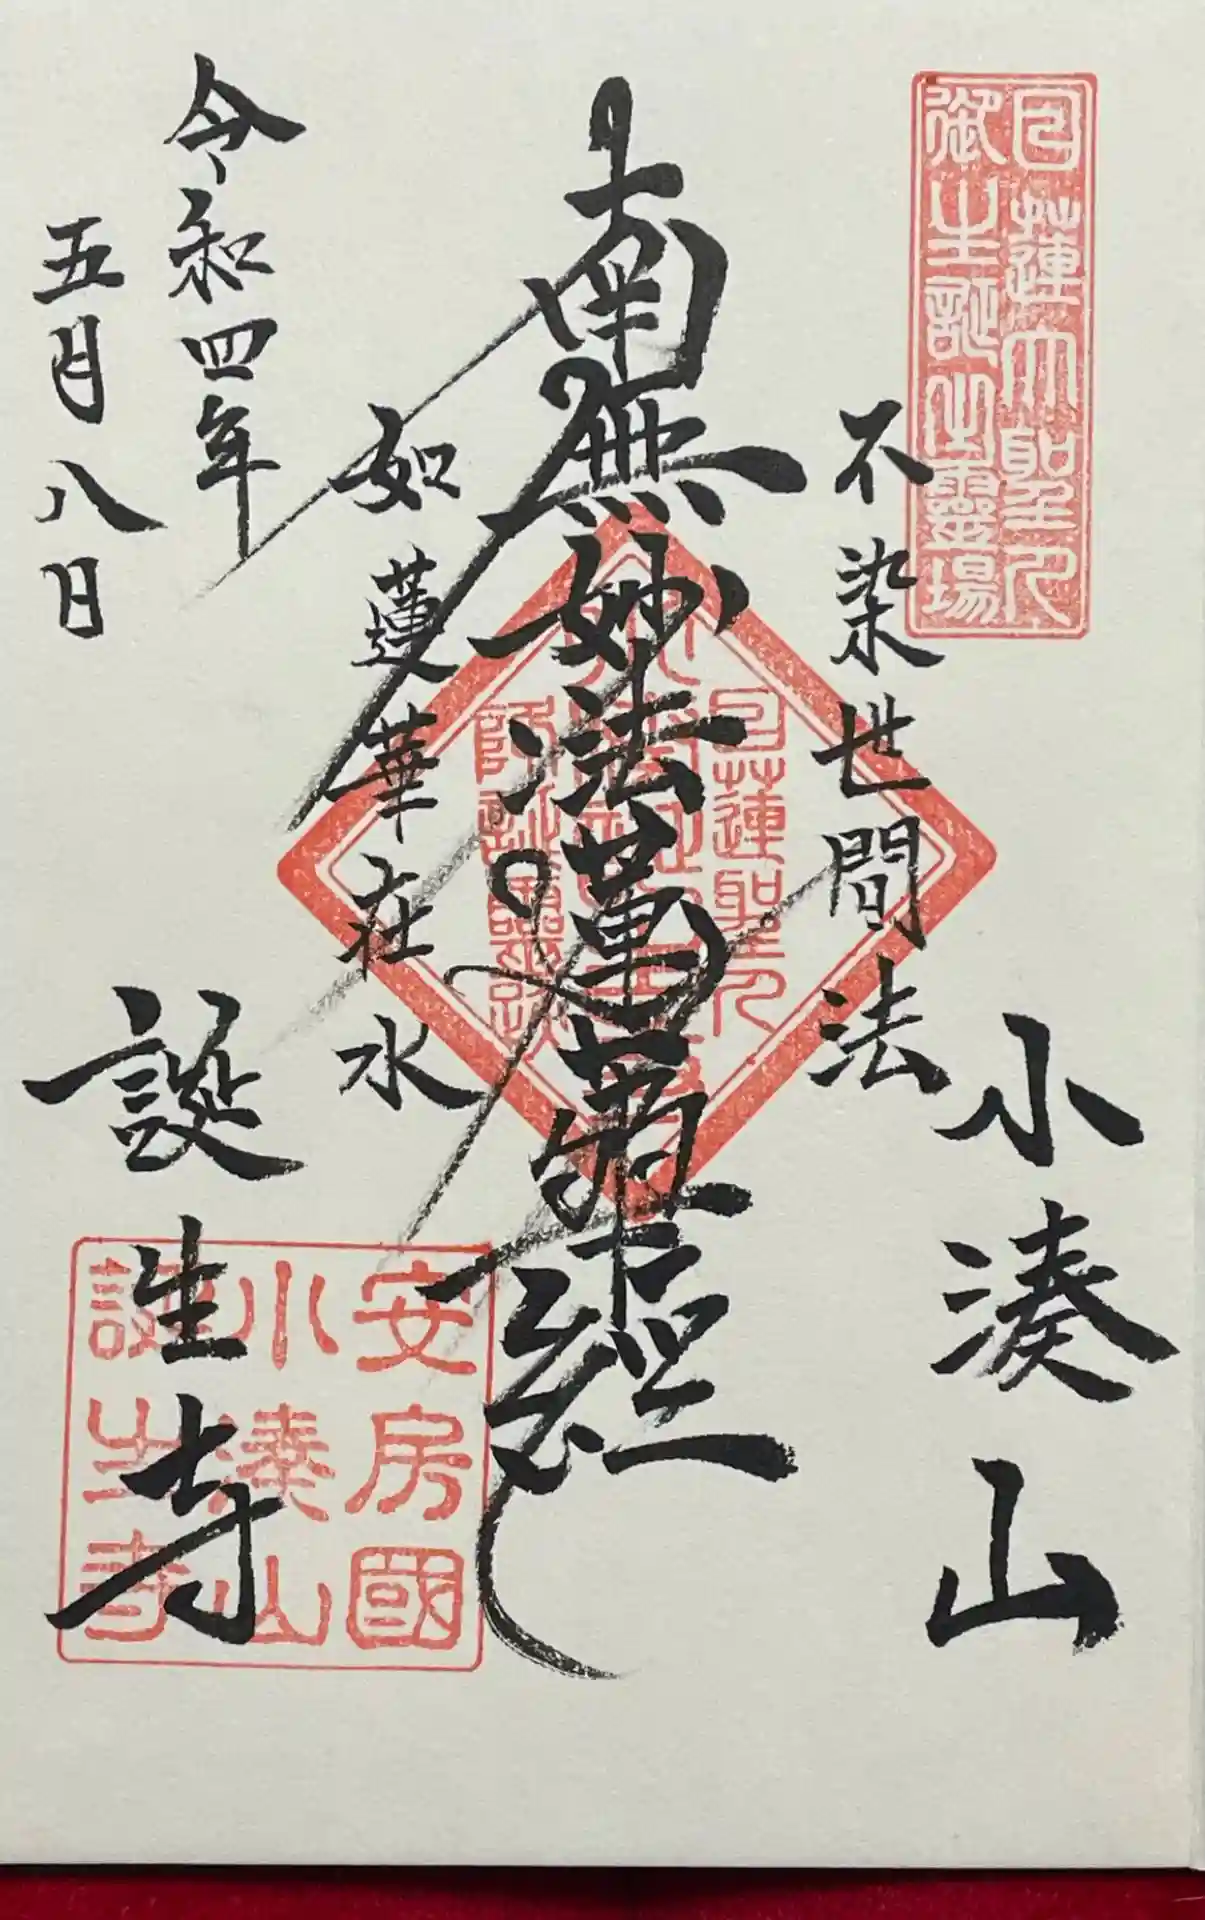 日蓮大聖人
御生誕之靈場
小湊山
不染世間法
南無妙法蓮華経
日蓮聖人
如蓮華在水
誕生寺
安房國
小湊山
誕生寺
令和四年
五月八日